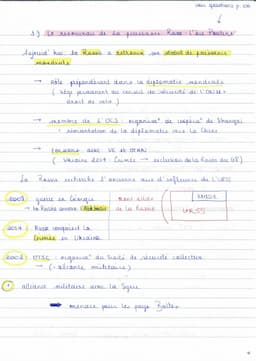 voir questions p. 108
3) Le renouveau de la puissance Russe : l'ère Poutine
Aujourd'hui, la Russie a retrouvé son statut de puissance
mondiale
→ Rôle prépondérant dans la diplomatie mondiale
( siège permanent au conseil de sécurité de l'ONU +
droit de veto )
→ membre de l'OCS : organisat° de coopérat° de Shangai
- réorientation de la diplomatie vers la Chine
→ avec UE et OTAN
( Ukraine 2014 : Crimée → exclusion de la Russie du G8 )
La Russie recherche l'ancienne aire d'influence de l'URSS
2008 : guerre en Géorgie
→ la Russie annexe l'Abkhazie
de la Russie
RUSSIE
URSS
2014 : Russie conquiert la
Crimée en Ukraine
2002 : OTSC : organisat° du traité de sécurité collective
→ ( - alliance militaire )
alliance militaire avec la Syrie
➡ menace pour les pays Baltes